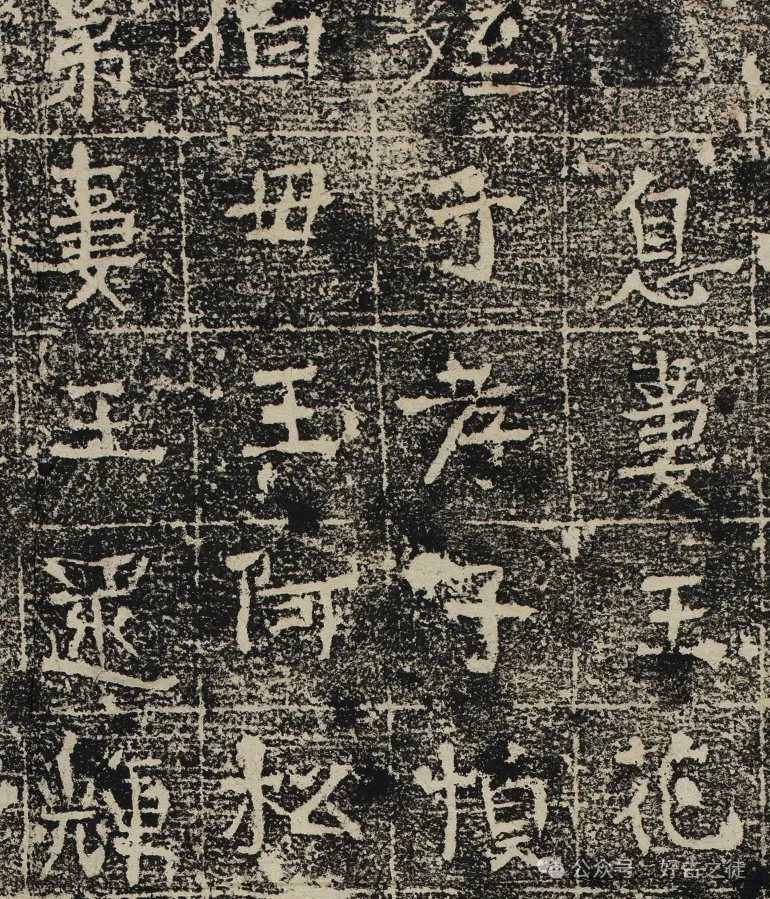 息妻王花
姪子孝子慎
伯母王阿松
弟妻王輝
公众号·好古之徒